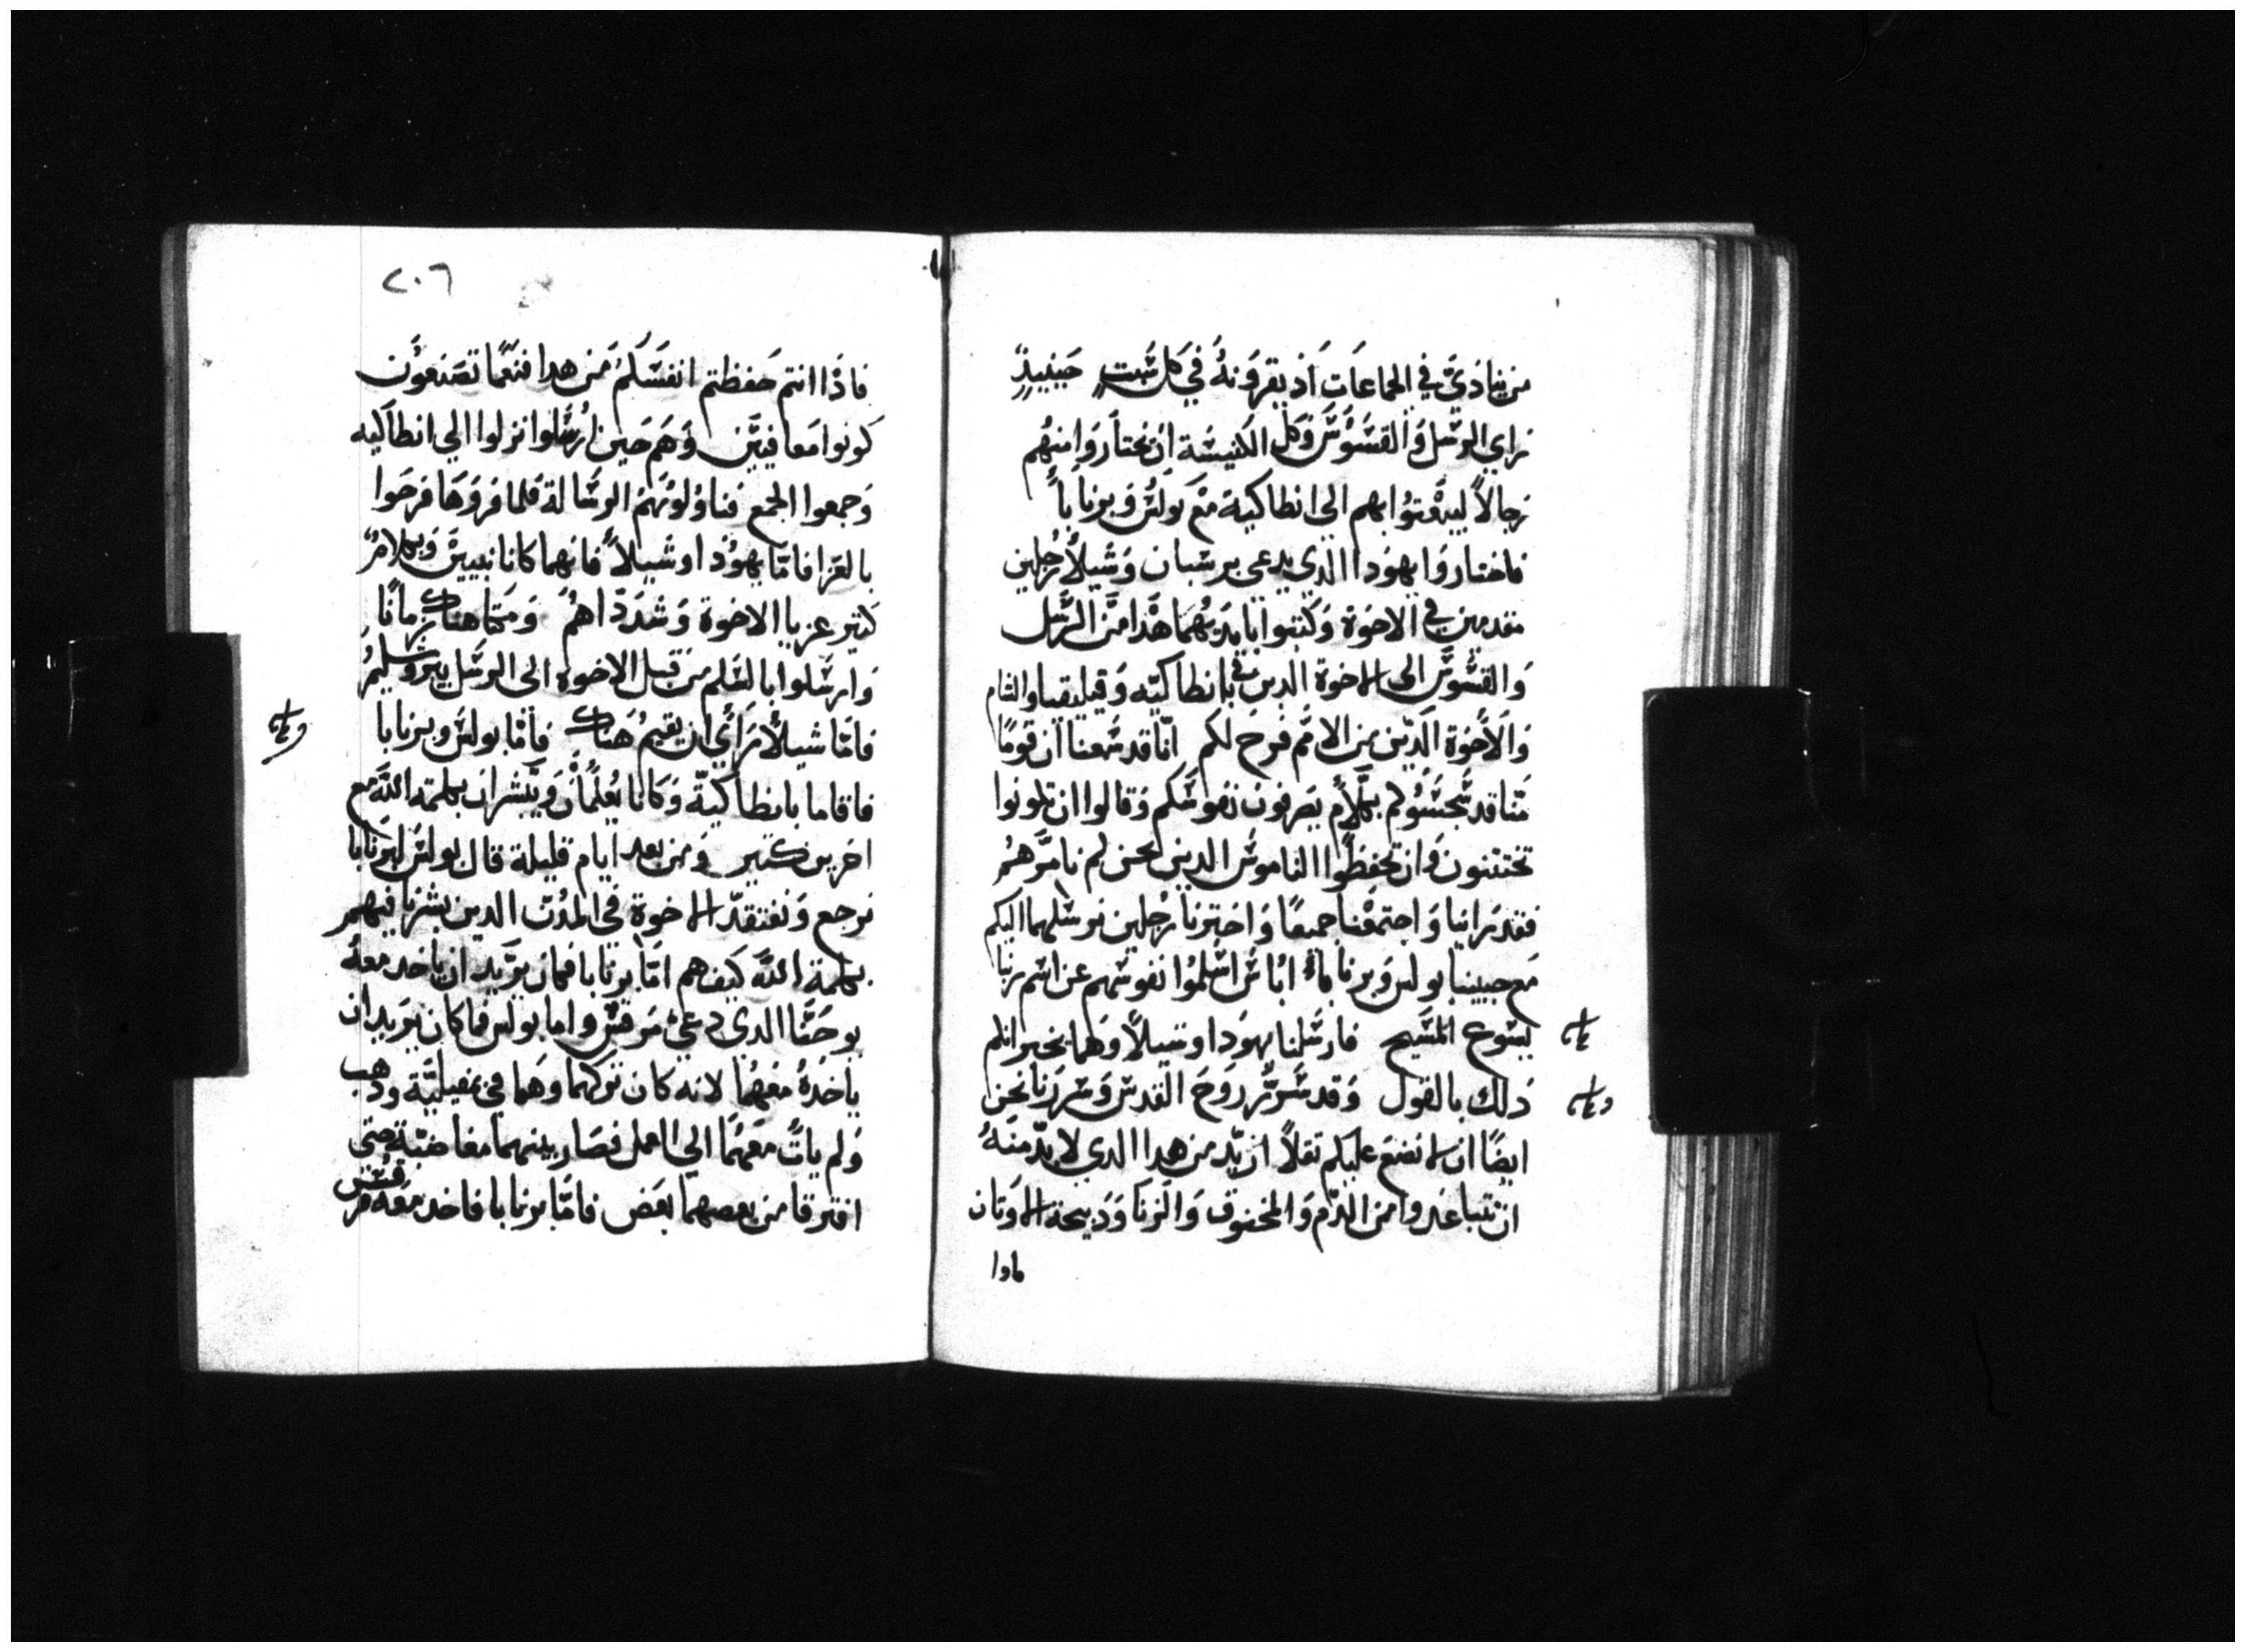 من ينادي في الجماعات اذ يقرونه في كل سبت حينيذ
راي الرسل والقسوس وكل الكنيسة ان يختاروا منهم
رجالاً ليبعتوا بهم الي انطاكية مع بولس وبرنابا
فاختاروا يهودا الدي يدعي برسبان وشيلا رجلين
مقدمين في الاخوة وكتبوا بايديهما هدا من الرسل
والقسوس الي الاخوة الدين في بانطاكيه وقيليقيا والشام
والاخوة الدين من الامم فرح لكم انا قد سمعنا ان قومًا
منا قد سجسوكم بكلام يصرفون نفوسكم وقالوا ان تكونوا
تختتنون وان تحفظوا الناموس الدين نحن لم نامرهم
فقد راينا واجتمعنا جميعًا واخترنا رجلين نرسلهما اليكم
مع حبيبينا بولس وبرنابا اناس اسلموا نفوسهم عن اسم ربنا
يسوع المسيح فارسلنا يهودا وشيلا وهما يخبرانكم
دلك بالقول وقد سر روح القدس وسررنا نحن
ايضًا ان لا نضع عليكم تقلاً ازيد من هدا الدي لا بد منه
ان تتباعدوا من الدم والمخنوق والزنا ودبيحة الاوتان
فادا
٢٠٦
فاذا انتم حفظتم انفسكم من هدا فنعما تصنعون
كونوا معافيين وهم حين ارسلوا نزلوا الي انطاكيه
وجمعوا الجمع فناولونهم الرسالة فلما قروها فرحوا
بالعزا فاما يهودا وشيلا فانهما كانا نبيين وبكلام
كتير عزيا الاخوة وشدداهم ومكتا هناك زمانًا
وارسلوا بالسلم من قبل الاخوة الي الرسل بيروشليم
فاما شيلا راي ان يقيم هناك فاما بولس وبرنابا
فاقاما بانطاكية وكانا يعلمان ويبشران بكلمة الله مع
اخرين كتير ومن بعد ايام قليلة قال بولس لبرنابا
نرجع ونفتقد الاخوة في المدن الدين بشرنا فيهم
بكلمة الله كيف هم اما برنابا فكان يريد ان ياخد معه
يوحنا الدي دعي مرقس واما بولس فما كان يريد ان
ياخده معهما لانه كان تركهما وهما في بمفيلية ودهب
ولم يات معهما الي العمل فصار بينهما مغاضبة حتى
افترقا من بعضهما بعض فاما برنابا فاخد معه مرقس